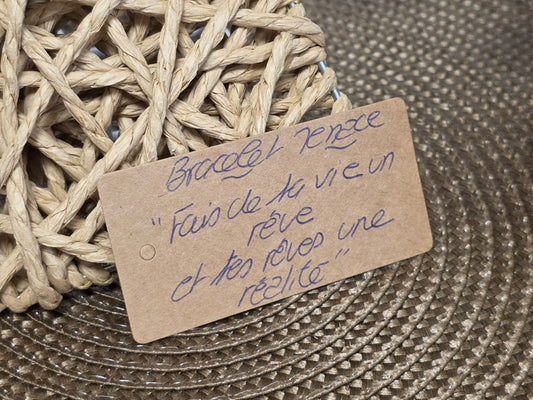 Bracelet Tenace
"Fais de ta vie un
rêve
et tes rêves une
réalité"